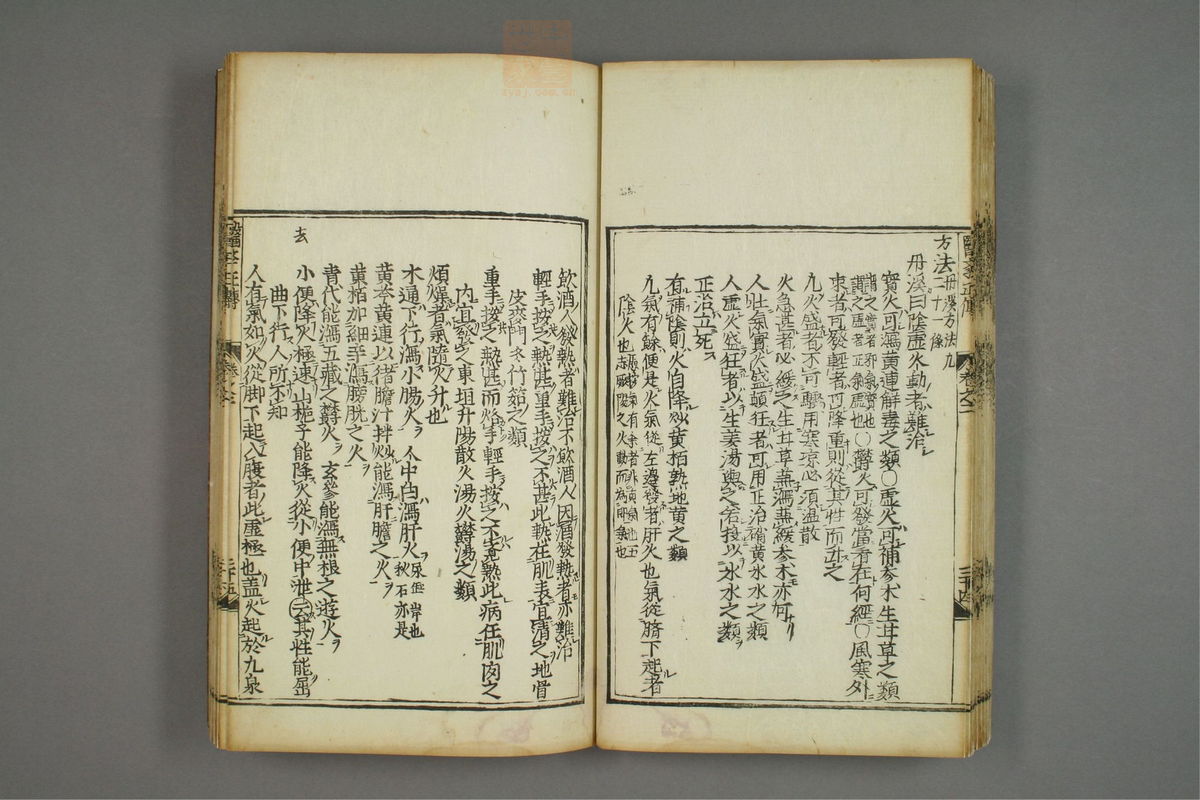 方法 丹溪方法 凡二十條
丹溪曰陰虛火動者難治
實火可瀉黃連解毒之類○虛火可補參朮生甘草之類
謂之實者邪氣實也謂之虛者正氣虛也○欝火可發當看在何經○風寒外
束者可發輕者可降重則從其性而升之
凡火盛者不可驟用寒凉必須溫散
火急甚者必緩之生甘草兼瀉兼緩參朮亦可
人壯氣實火盛顛狂者可用正治硝黃氷水之類
人虛火盛狂者以生姜湯與之若投以氷水之類
正治立死
有補陰則火自降炒黃栢熟地黃之類
凡氣有餘便是火氣從左邊發者肝火也氣從臍下起者
陰火也
飲酒人發熱者難治不飲酒人因酒發熱者亦難治
輕手按之熱甚重手按之不甚此熱在肌表宜清之地骨
皮麥門冬竹茹之類
重手按之熱甚而烙手輕手按之不竟熱此病在肌肉之
內宜發之東垣升陽散火湯火欝湯之類
煩燥者氣隨火升也
木通下行瀉小腸火 人中白瀉肝火尿缸岸也秋石亦是
黃芩黃連以猪膽汁拌炒能瀉肝膽之火
黃栢加細辛瀉膀胱之火
青代能瀉五藏之欝火 玄參能瀉無根之遊火
小便降火極速 山梔子能降火從小便中泄去其性能屈
曲下行人所不知
人有氣如火從脚下起入腹者此虛極也盖火起於九泉
去
醫學正傳
卷之二
二十四
二十五